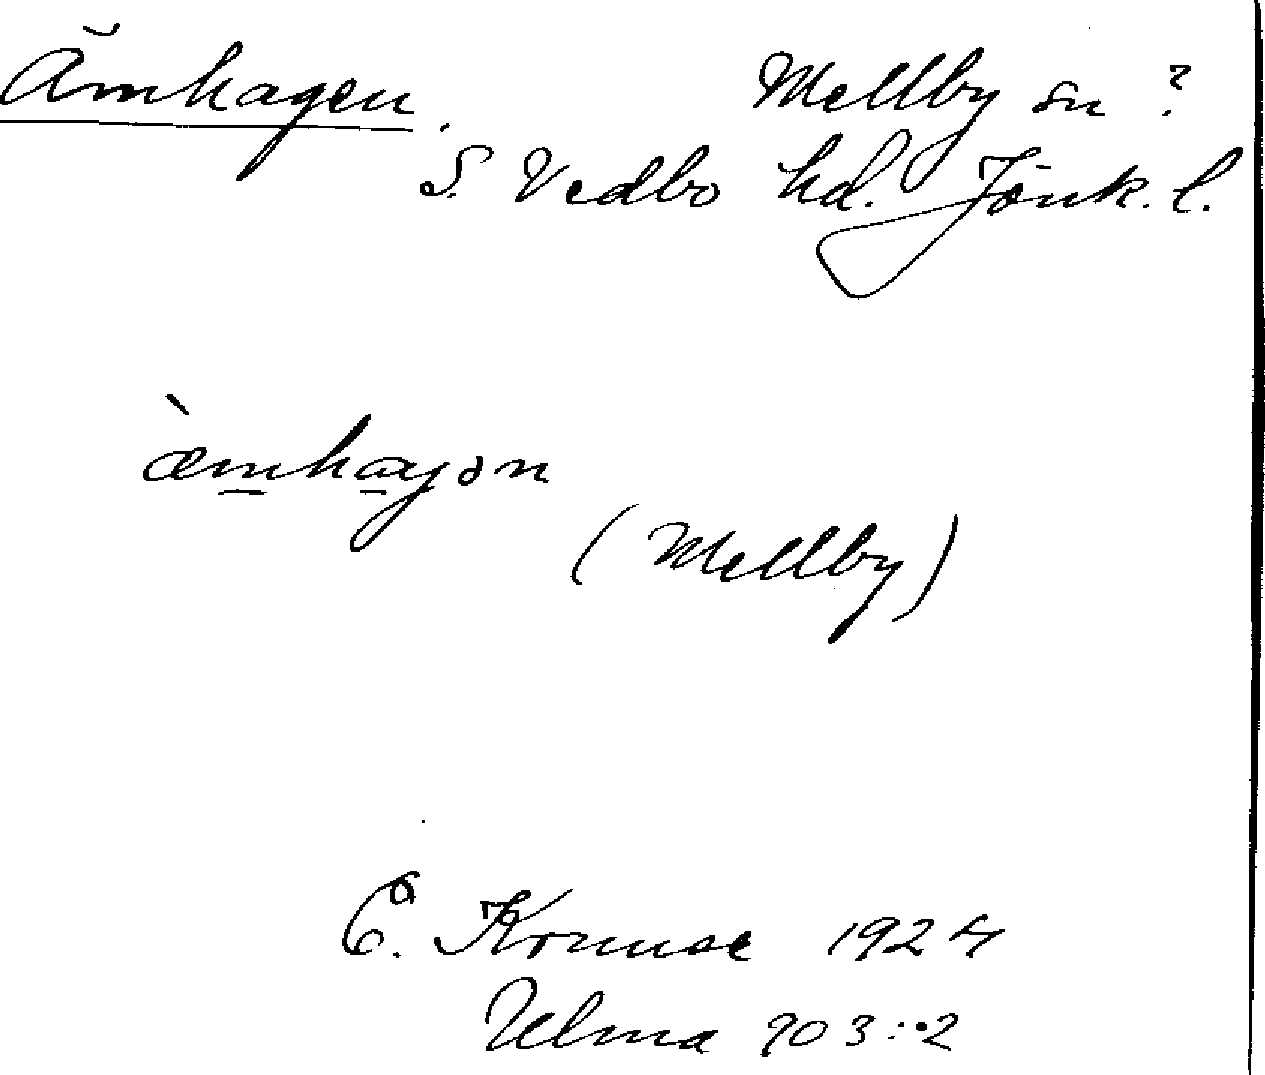 Ämhagen. Mellby sn ?
S. Vedbo hd. Jönk. l.
æ̀mhaγən
(Mellby)
C. Kruuse 1924
Ulma 903:2